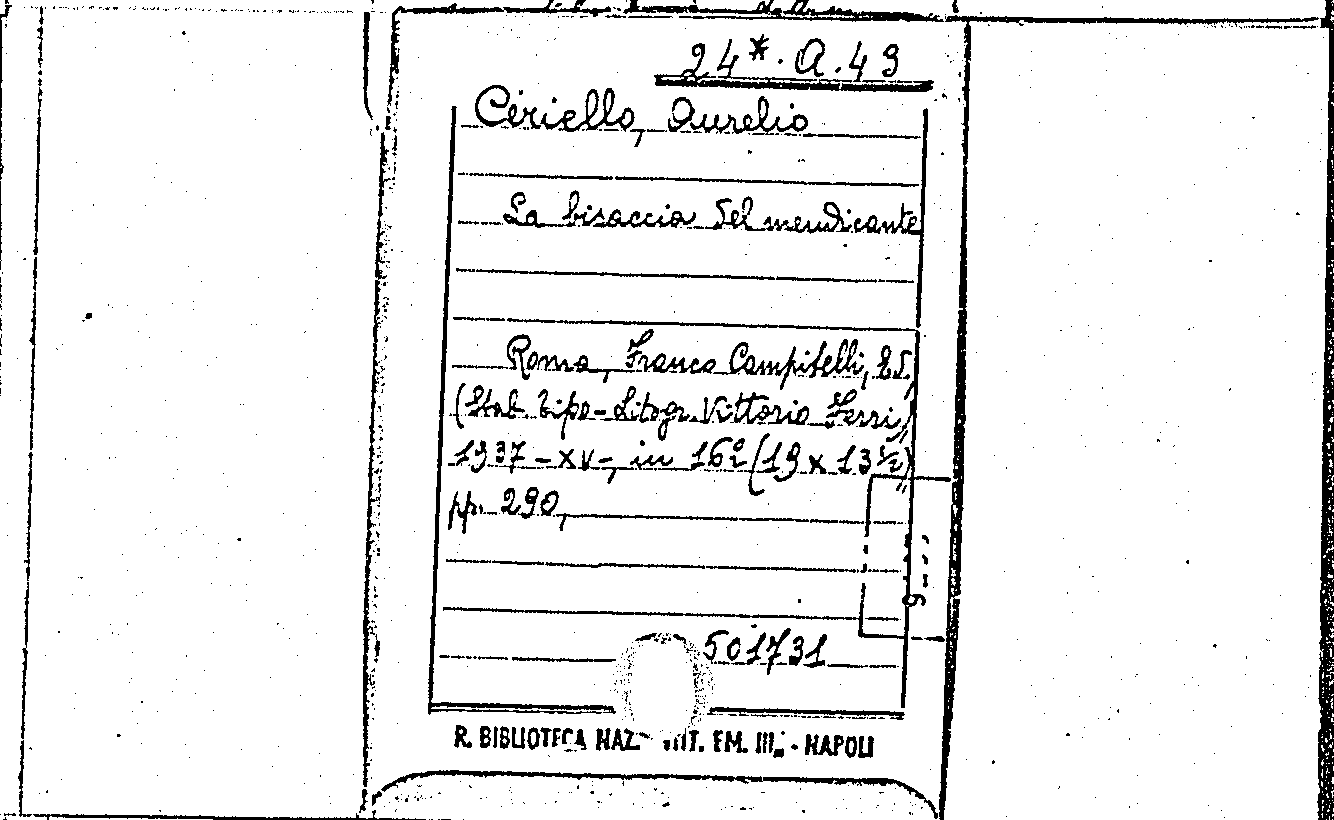 24*. A. 49
Ceriello, Aurelio
La bisaccia del mendicante
Roma, Franco Campitelli, Ed.,
(Stab. Tipo-Litogr. Vittorio Ferri)
1937 - XV -, in 16º (19 x 13 ½)
pp. 290,
501731
R. BIBLIOTECA NAZ. VITT. EM. III. - NAPOLI